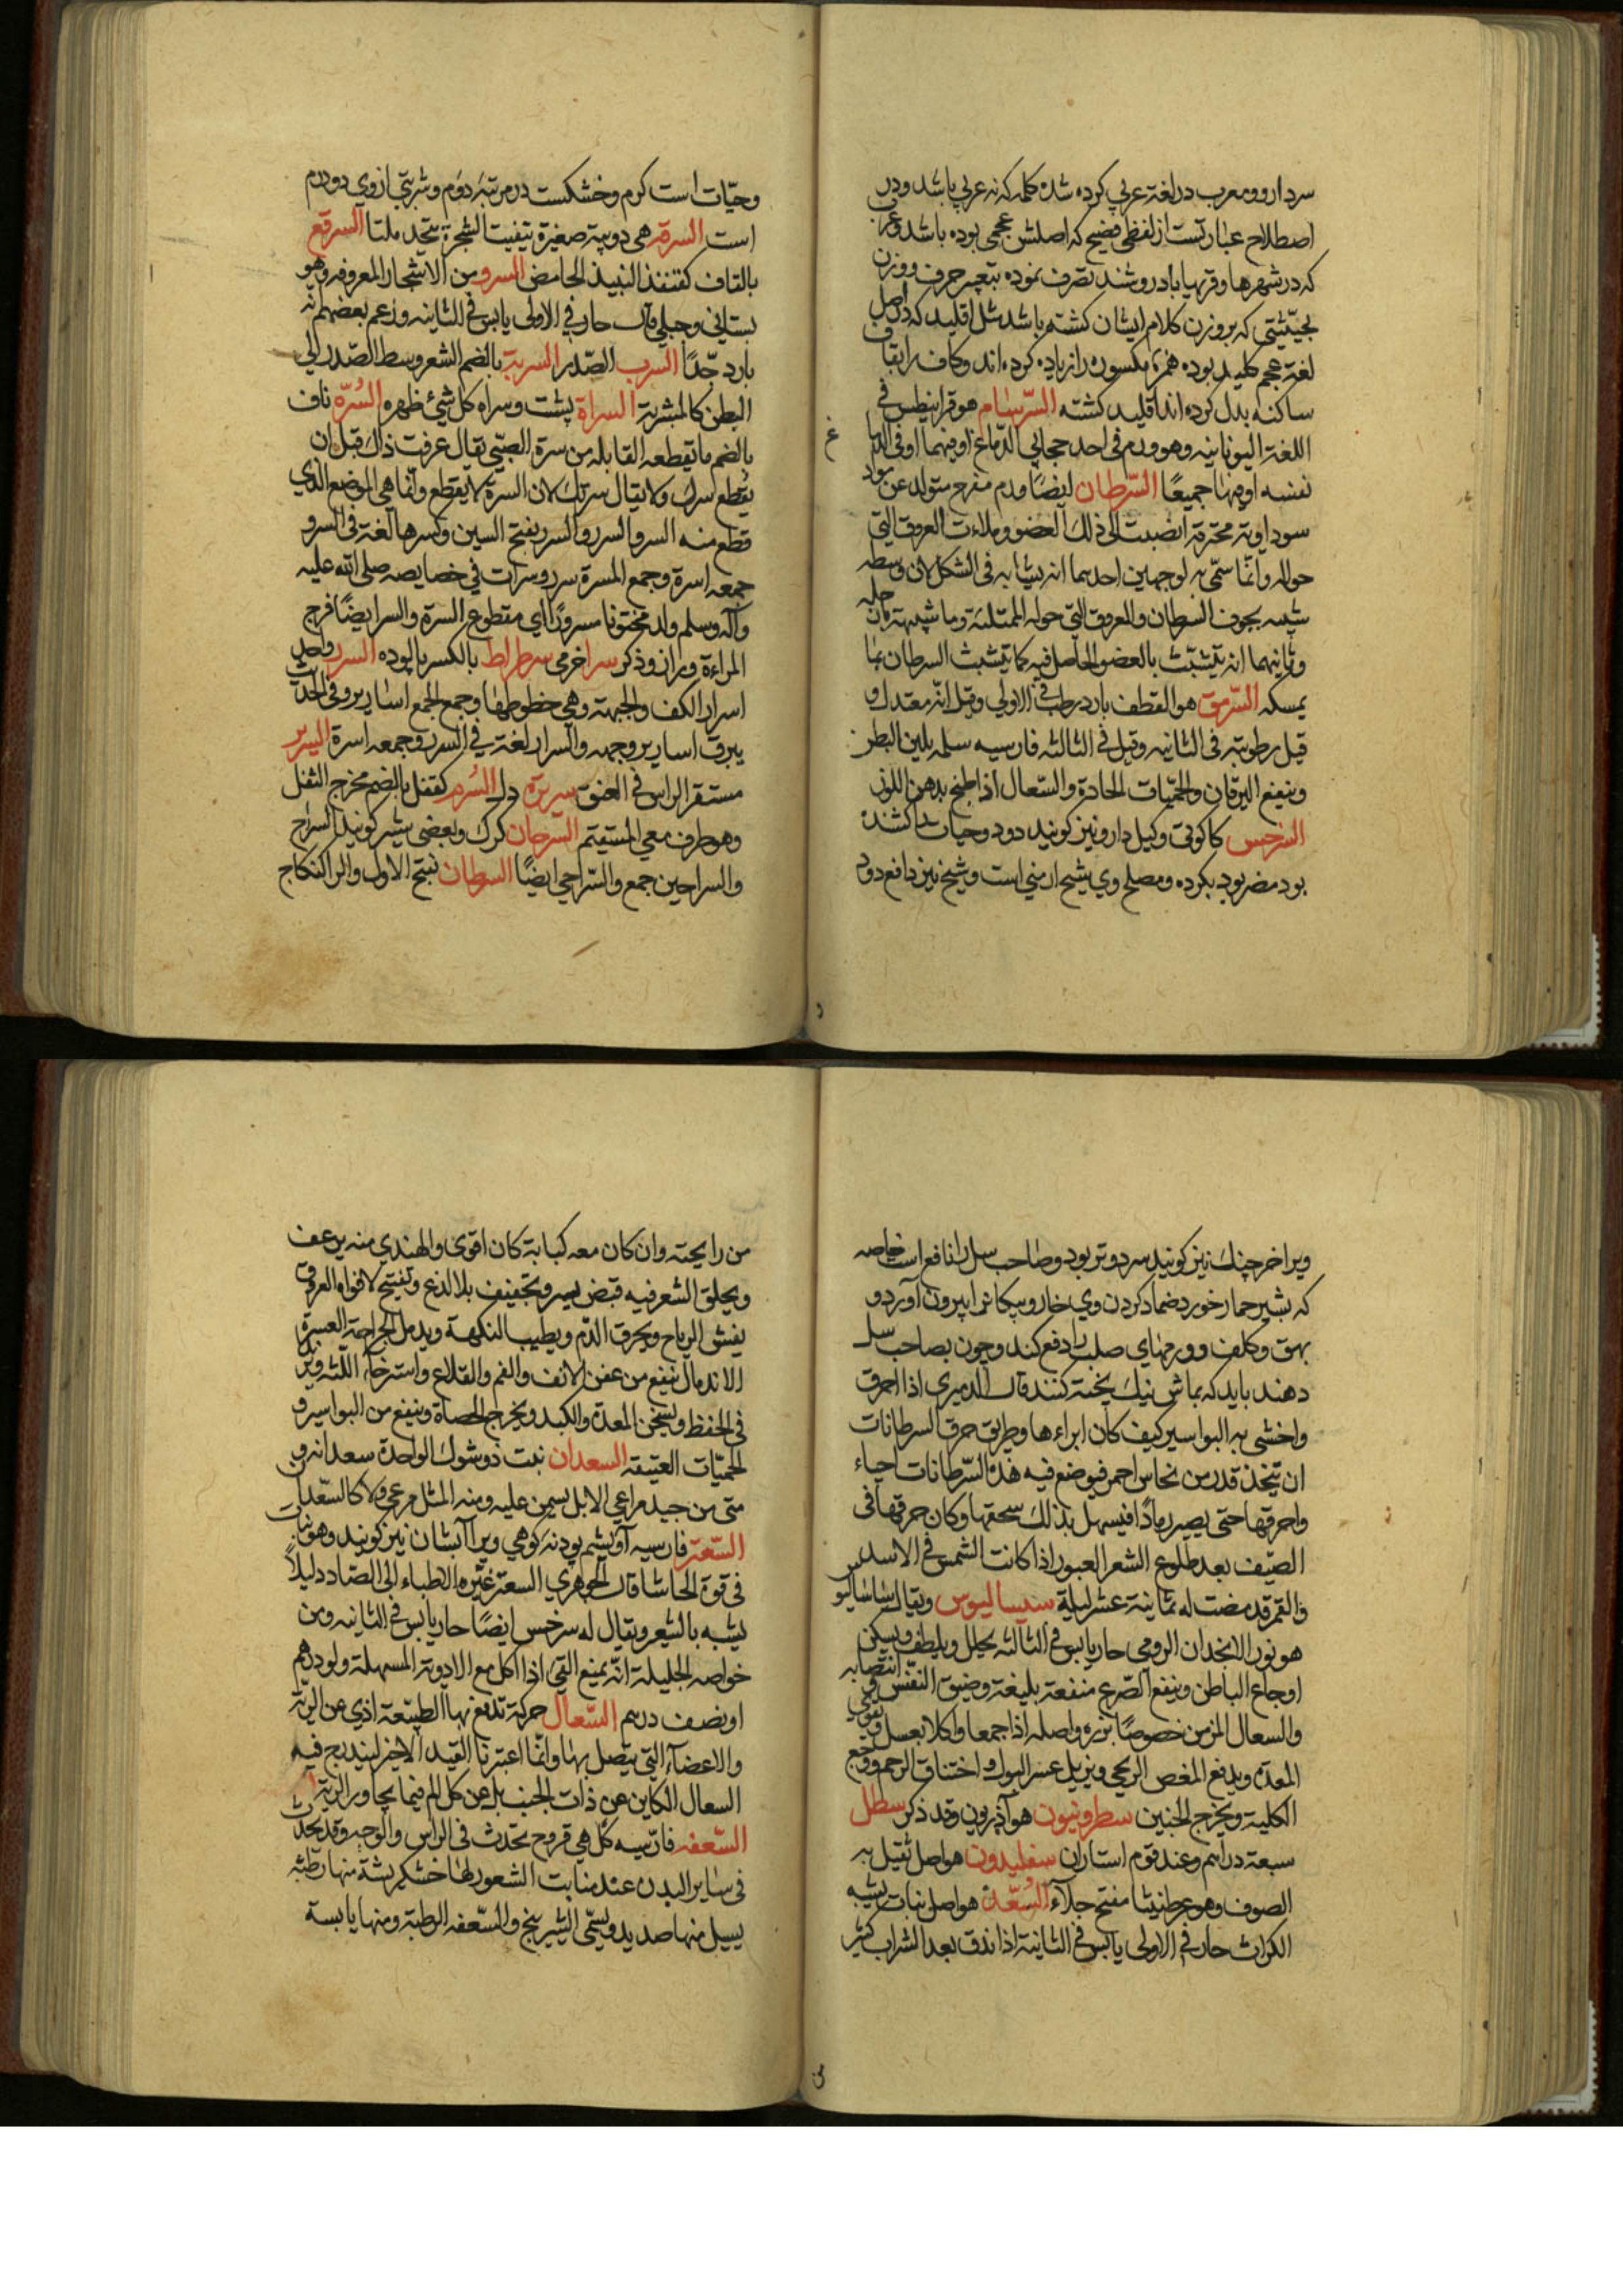 سردارو ومعرب در لغة عربي كرده شده كلمه كه نه عربي باشد ودر
اصطلاح عبارتست از لفظى فصيح كه اصلش عجمى بوده باشد وعرب
كه در شهرها وقريها يا باد رو شند تصرف نموده بتغيير حرف ووزن
بحيثيتى كه بر وزن كلام ايشان كشته باشد مثل اقليد كه در اصل
لغة عجم كليد بوده همزه مكسوره را زياده كرده اند وكاف را بقاف
ساكنه بدل كرده اند اقليد كشته السّرسام هو قرانيطس فى
اللغة اليونانيه وهو ورم فى احد حجابي الدّماغ او فيهما او فى الدماغ
نفسه او فيها جميعًا السّرطان ايضًا ورم متقرح متولد عن مواد
سوداوية محترقة انصبت الى ذلك العضو وملاءت العروق التي
حواله وانّما سمّى به لوجهين احدهما انه يشابه فى الشكل لان وسطه
شبيه بجوف السطان والعروق التي حوله الممتلئة وما شبيهة بارجله
وثانيهما انه يتشبّث بالعضو الحاصل فيه كما يتشبث السرطان بما
يمسكه السّرمق هو القطف بارد رطب فى الاولي وقيل انّه معتدل و
قيل رطوبته فى الثانيه وقيل فى الثالثه فارسيه سلمه يلين البطن
وينفع اليرقان والحمّيات الحادة والسّعال اذا طبخ بدهن اللوز
السرخس كا كوتي وكيل دارو نيز كويند دود وحيات را كشنده
بود مضر بود بكرده ومصلح وي شيح ارمني است وشيخ نيز دافع دود
وحيّات است كرم وخشكست در مرتبه دوم وشربتي ازوي دودرم
است السرفة هى دويبة صغيرة تتفيت الشجرة تتخذ ملتا السرقع
بالقاف كقنفذ النبيذ الحامض السرو من الاشجار المعروفه وهو
بستاني وجبلي قال حار في الاولى يابس فى الثانيه وزعم بعضهم انه
بارد جّدًا السرب الصّدر السّربة بالضم الشعر وسط الصّدر الى
البطن كالمشربة السراة پشت وسراه كل شئ ظهره السُرّه ناف
بالضم ما تقطعه القابله من سرة الصبّي يقال عرفت ذلك قبل ان
يقطع سرك ولا يقال سرتك لان السرة لا يقطع وانما هى الموضع الذي
قطع منه السر والسرر والسرر بفتح السين وكسرها لغة فى السر و
جمعه اسرة وجمع المسرة سرر وسرات في خصايصه صلى الله عليه
وآله وسلم ولد مختونا مسرورًا اي مقطوع السرة والسر ايضًا فرج
المراءة وران وذكر سرا خرمى سرطراط بالكسر پالوده السرر واحد
اسرار الكف والجبهة وهي خطوطها وجمع الجمع اسارير وفى الحديث
يبرق اسارير وجهه والسرار لغة في السرر وجمعه اسرة السرير
مستقر الراس فى العنق سريره دل السُرم كقفل بالضم مخرج الثفل
وهو طرف معي المستقيم السّرحان كرك وبعضى شير كويند السراح
والسراحين جمع والسّراحي ايضًا السرطان بفتح الاول والرا كنكاج
ويرا خرچنك نيز كويند سرد وتر بود وصاحب سل را نافع است خاصه
كه بشير حمار خورد ضماد كردن وي خار وپيكان را بيرون آورد و
بهق وكلف وورمهاي صلب را دفع كند وچون بصاحب سل
دهند بايد كه بماش نيك پخته كنند قال الدميري اذا احرق
واخشى به البواسير كيف كان ابراءها وطريق حرق السرطانات
ان يتخذ قدر من نحاس احمر فيوضع فيه هذه السّرطانات احياء
واحرقها حتى يصير رمادًا فيسهل بذلك سحقها وكان حرقها فى
الصيّف بعد طلوع الشعر العبور اذا كانت الشمس فى الاسد
والقمر قد مضت له ثمانية عشر ليلة سيساليوس ويقال ساساليو
هو نور الانخدان الرومي حار يابس فى الثالثه يحلل ويلطف ويسكن
اوجاع الباطن وينفع الصّرع منفعة بليغة وضيق النفّس انتصابه
والسعال المزمن خصوصًا بزره واصله اذا جمعا واكلا بعسل ويقوي
المعدة ويدفع المغص الريحي ويزيل عسر البول واختناق الرحم ووجع
الكلية ويخرج الجنين سطرونيون هو آذربون وقد ذكر سطل
سبعة دراهم وعند قوم استاران سفليدون هو اصل ثقيل به
الصوف وهو عرطنيثا مفتح جلاء السُعّد هو اصل نبات يشبه
الكراث حار فى الاولى يابس فى الثانية اذا نذق بعد الشراب كثير
من رايحته وان كان معه كبابة كان اقوى والهندي منه يرعف
ويحلق الشعر فيه قبض يسير وتجفيف بلا لدغ وتفتيح لافواه العروق
يفش الرياح ويحرق الدّم ويطيب النكهة ويدمل الجراحة العسرة
الاندمال ينفع من عفن الانف والفم والقلاع واسترخاء اللّثه ويزيد
فى الحفظ ويسخن المعدة والكبد ويخرج الحصاة وينفع من البواسير و
الحميّات العتيقه السعدان نبت ذو شوك الواحدة سعدانه و
متى من جيد مراعي الابل يسمن عليه ومنه المثل مرعى ولا كالسّعدان
السّعتر فارسيه آويشم پودنه كوهي ويرا آبشان نيز كويند وهو نبات
فى قوة الحاشا قال الجوهري السعتر غيّره الاطباء الى الصاد دليلاً
يشبه بالشعير ويقال له سرخس ايضًا حار يابس فى الثانيه ومن
خواصه الجليلة انّه يمنع التي اذا اكل مع الادوية المسهلة ولو درهم
او نصف درهم السّعال حركة تدفع بها الطبيّعة اذي عن الرية
والاعضاء التي يتصل بها وانّما اعتبرنا القيد الاخر ليندرج فيه
السعال الكاين عن ذات الجنب بل عن كل الم فيما يجاور الرية
السّعفه فارسيه كل هي قروح تحدث فى الراس والوجه وقد تحدث
فى ساير البدن عند منابت الشعور لها خشكريشة منها رطبه
يسيل منها صديد ويسمّى الشيرينج والسّعفه الرطبة ومنها يابسة